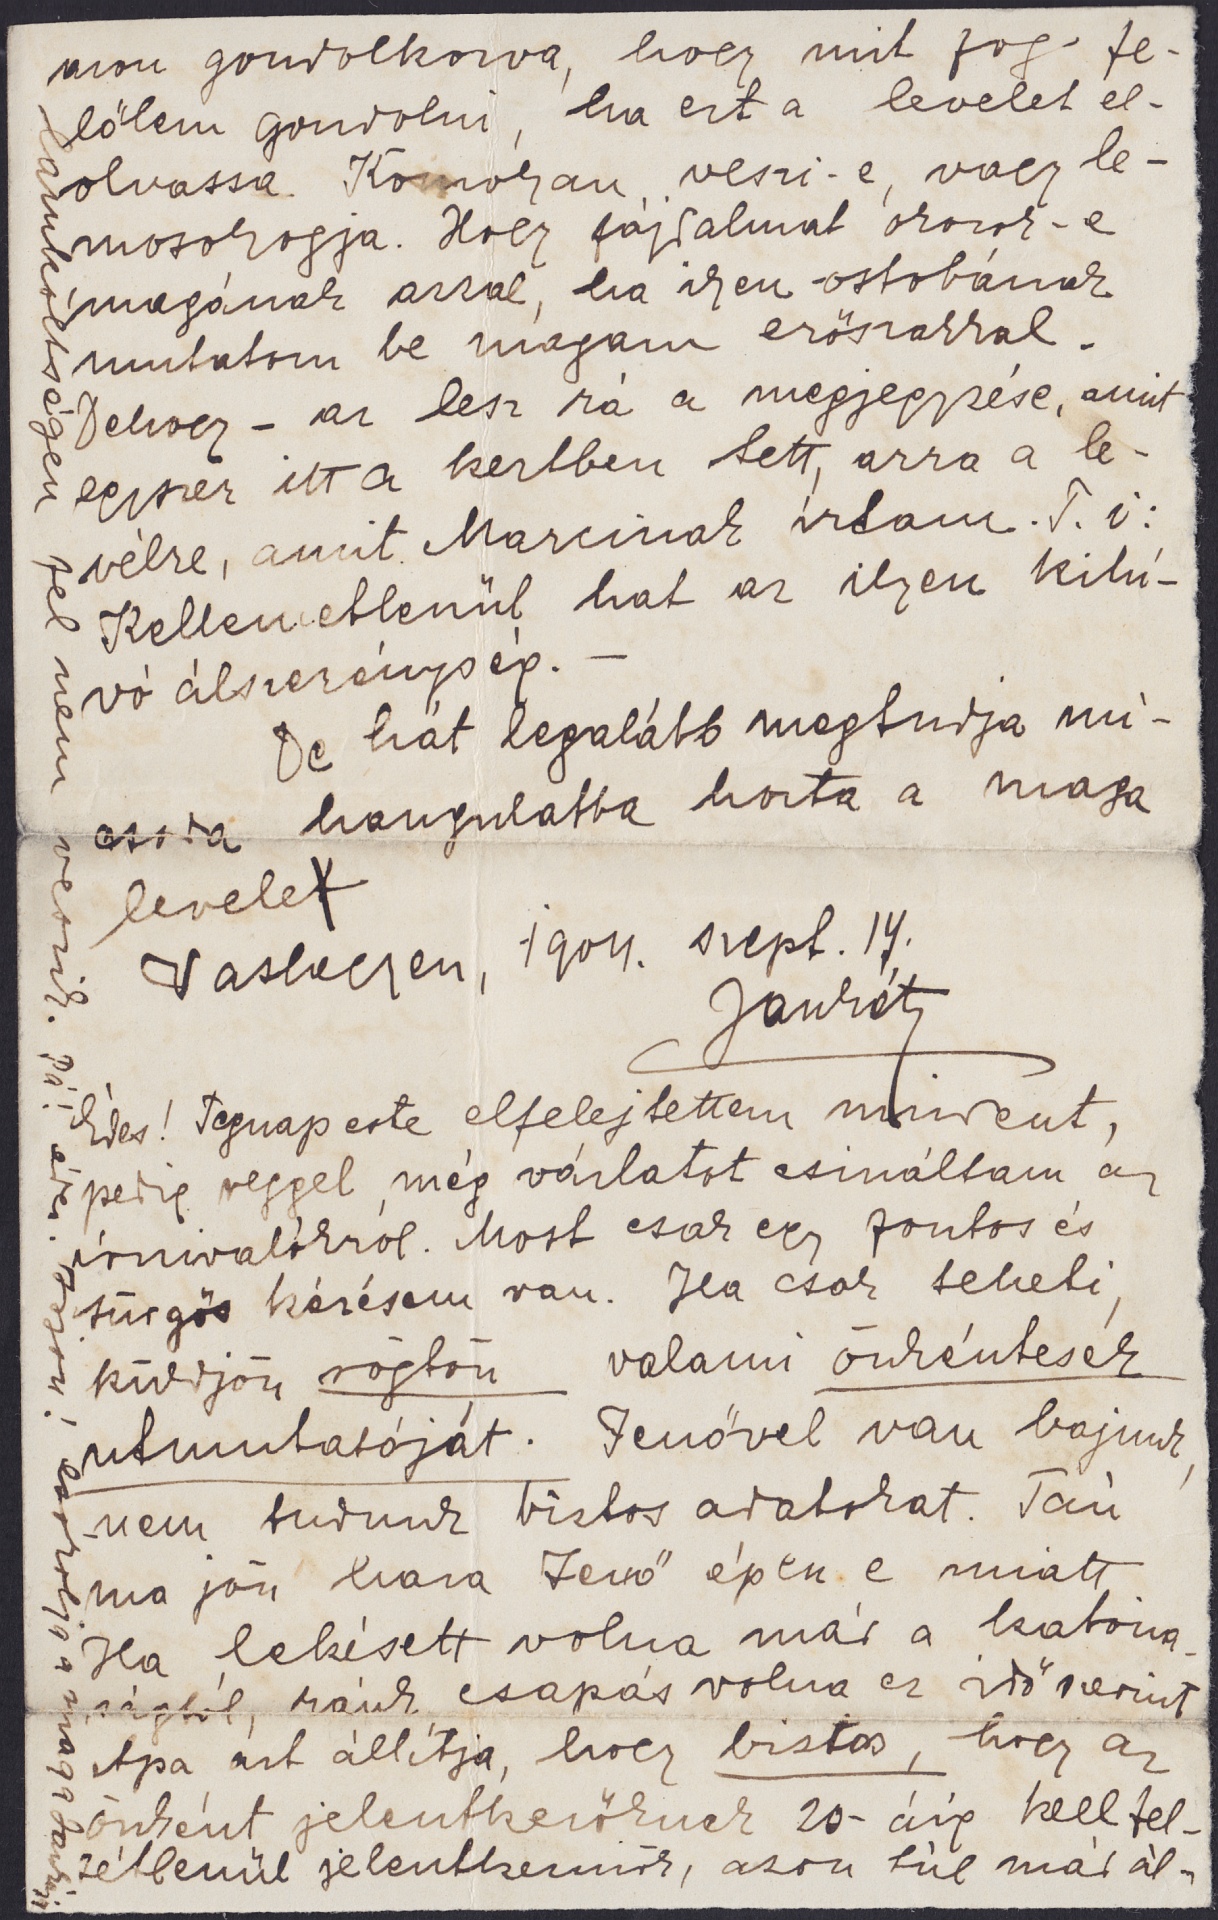 mon gondolkozva, hogy mit fog fe-
lőlem gondolni, ha ezt a levelet el-
olvassa. Komolyan veszi-e, vagy le-
mosolyogja. Hogy fájdalmat okozok-e
magának azzal, ha ilyen ostobának
mutatom be magam erőszakkal.
Dehogy – az lesz rá a megjegyzése, amit
egyszer itt a kertben tett, arra a le-
vélre, amit Marcinak írtam. T. i:
Kellemetlenül hat az ilyen kihí-
vó álszerénység. –
De hát legalább megtudja mi-
hangulatba hozta a maga
levele
Vashegyen, 1904. szept. 17.
Jankót
Édes! Tegnap este elfelejtettem mindent,
pedig reggel még vázlatot csináltam az
írnivalókról. Most csak egy fontos és
sürgős kérésem van. Ha csak teheti,
küldjön rögtön valami önkéntesek
utmutatóját. Jenővel van bajunk,
nem tudunk biztos adatokat. Tán
ma jön haza Jenő épen e miatt
Ha lekésett volna már a katona-
ságtól, ránk csapás volna ez idő szerint
Apa azt állítja, hogy biztos, hogy az
önként jelentkezőknek 20-áig kell fel-
tétlenül jelentkezniök, azon túl már ál-
fel nem veszik. Pá! édes.